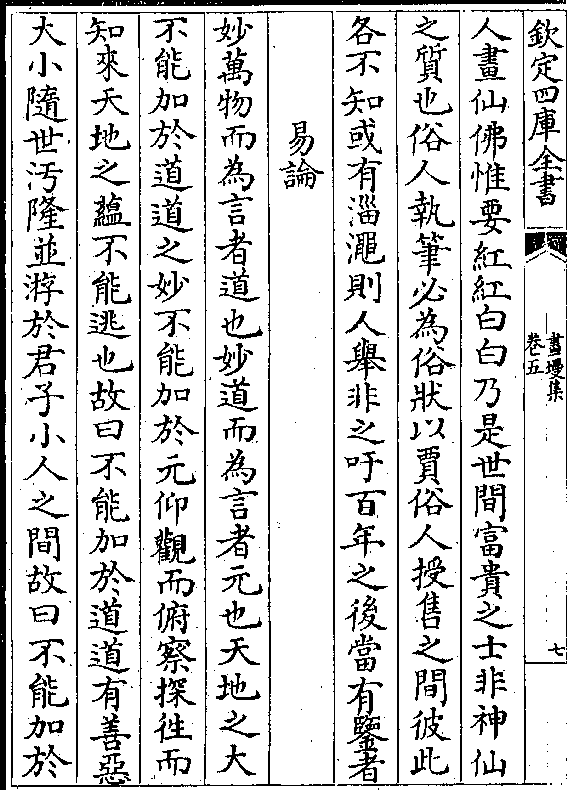 欽定四庫全書
畫墁集
卷五
七
人畫仙佛惟要紅紅白白乃是世間富貴之士非神仙
之質也俗人執筆必為俗狀以賈俗人授售之間彼此
各不知或有淄澠則人舉非之吁百年之後當有鑒者
易論
妙萬物而為言者道也妙道而為言者元也天地之大
不能加於道道之妙不能加於元仰觀而俯察探徃而
知來天地之蘊不能逃也故曰不能加於道道有善惡
大小隨世汚隆並㳺於君子小人之間故曰不能加於